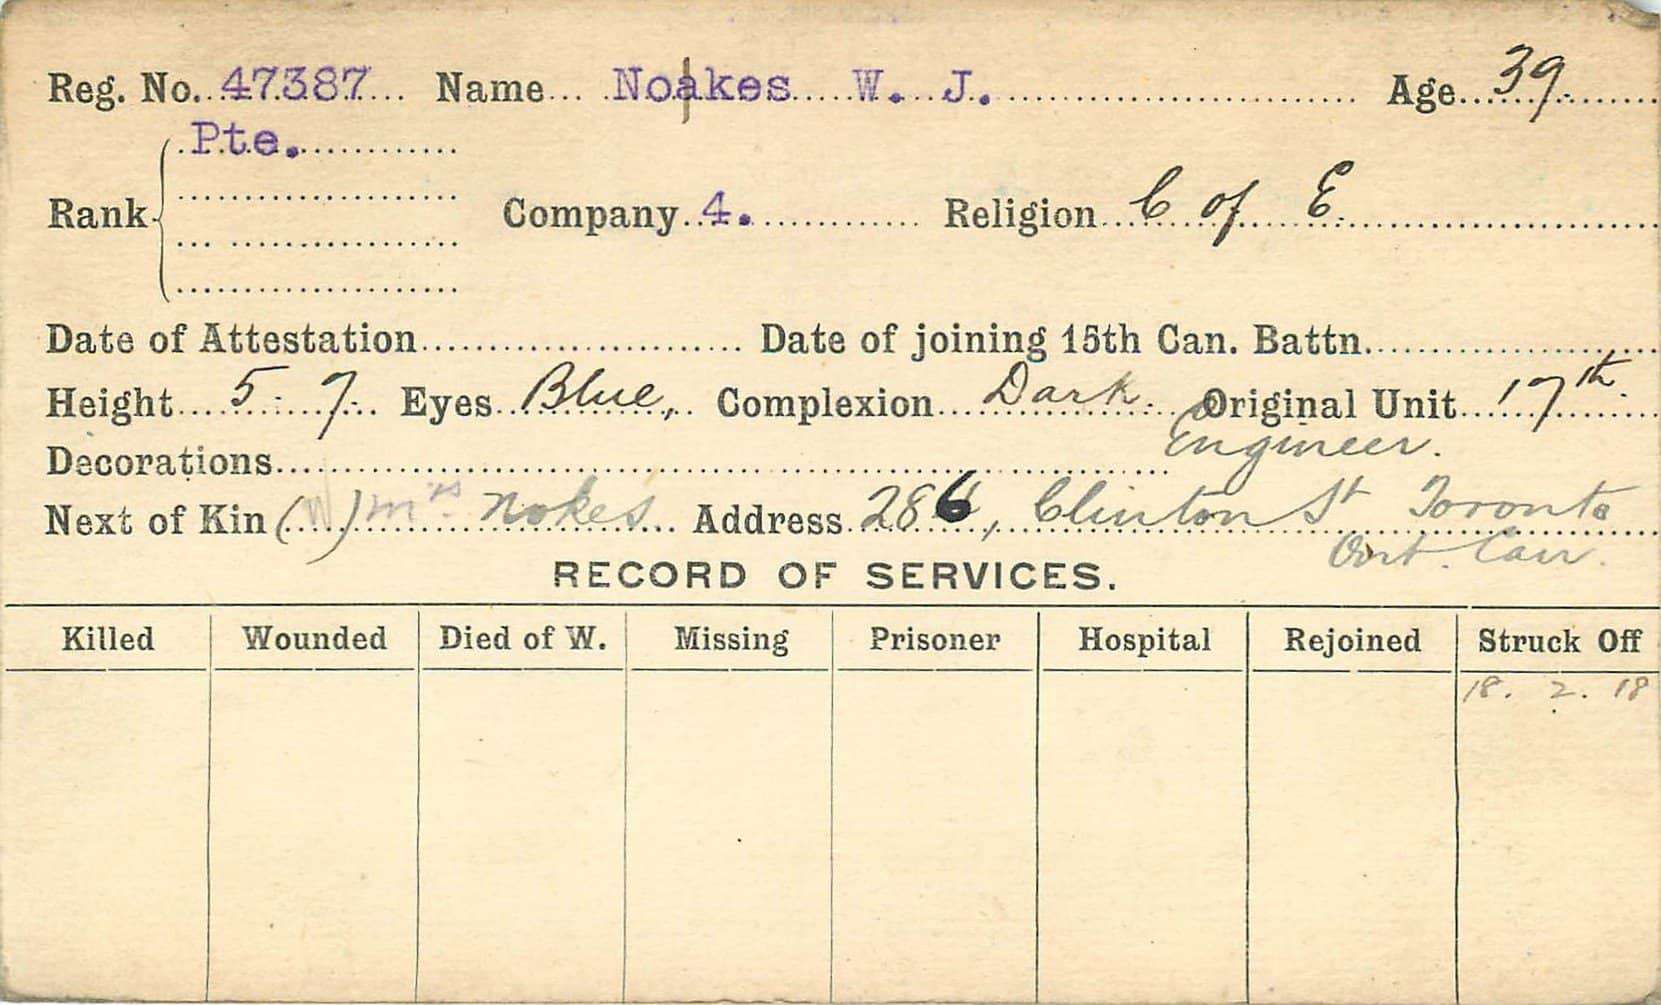 Reg. No. 47387 Name Noakes W. J. Age 39.
Pte.
Rank Company 4. Religion C of E.
Date of Attestation Date of joining 15th Can. Battn.
Height 5. 7. Eyes Blue, Complexion Dark. Original Unit 17th
Engineer.
Decorations
Next of Kin (W) Mrs. Nokes Address 286, Clinton St Toronto
Ont. Can.
RECORD OF SERVICES.
Killed Wounded Died of W. Missing Prisoner Hospital Rejoined Struck Off
18. 2. 18